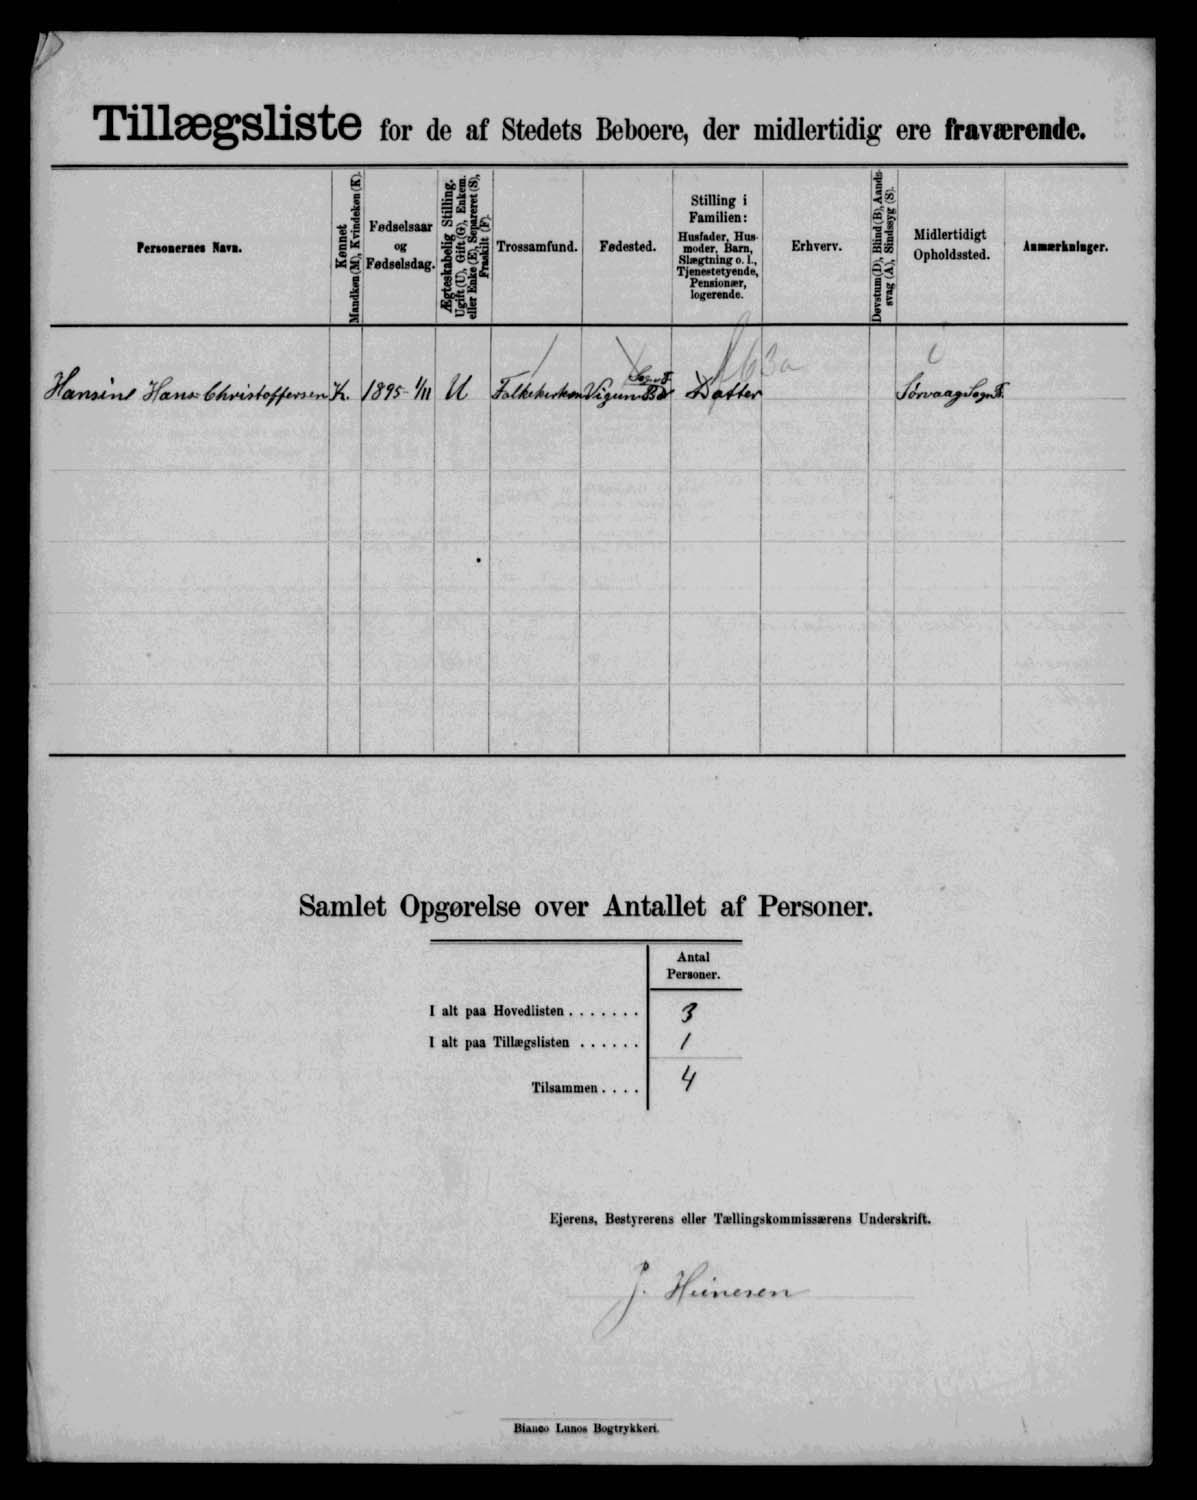 Tillægsliste for de af Stedets Beboere, der midlertidig ere fraværende.
Personernes Navn.
Kønnet
Mandkøn (M), Kvindekøn (K).
Fødselsaar
og
Fødselsdag.
Ægteskabelig Stilling.
Ugift (U), Gift (G), Enkem.
eller Enke (E), Separeret (S),
Fraskilt (F).
Trossamfund.
Fødested.
Stilling i
Familien:
Husfader, Hus-
moder, Barn,
Slægtning o. l.,
Tjenestetyende,
Pensionær,
logerende.
Erhverv.
Døvstum (D), Blind (B), Aands-
svag (A), Sindssyg (S).
Midlertidigt
Opholdssted.
Anmærkninger.
Hansine Hans Christoffersen K. 1895 1/11 U Folkekirken Vigum Datter Sørvaag Sogn F.
Samlet Opgørelse over Antallet af Personer.
Antal
Personer.
I alt paa Hovedlisten . . . . . . . 3
I alt paa Tillægslisten . . . . . . 1
Tilsammen . . . . 4
Ejerens, Bestyrerens eller Tællingskommissærens Underskrift.
J. Heinesen
Bianco Lunos Bogtrykkeri.